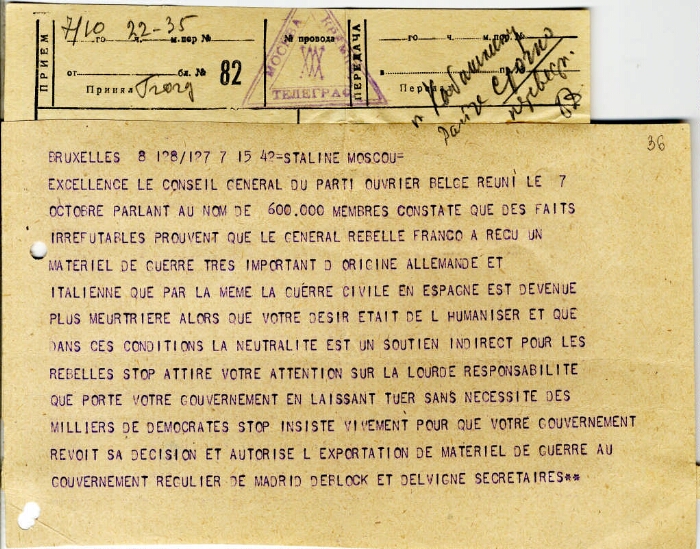 ПРИЕМ
7/10 22-35
го ч. м.пер №
от бл. №
Принял
82
№ провода
МОСКВА КРЕМЛЬ
ТЕЛЕГРАФ
ПЕРЕДАЧА
го ч. м. пер. №
в
Перед
срочно
36
BRUXELLES 8 128/127 7 15 42=STALINE MOSCOU=
EXCELLENCE LE CONSEIL GENERAL DU PARTI OUVRIER BELGE REUNI LE 7
OCTOBRE PARLANT AU NOM DE 600.000 MEMBRES CONSTATE QUE DES FAITS
IRREFUTABLES PROUVENT QUE LE GENERAL REBELLE FRANCO A RECU UN
MATERIEL DE GUERRE TRES IMPORTANT D ORIGINE ALLEMANDE ET
ITALIENNE QUE PAR LA MEME LA GUERRE CIVILE EN ESPAGNE EST DEVENUE
PLUS MEURTRIERE ALORS QUE VOTRE DESIR ETAIT DE L HUMANISER ET QUE
DANS CES CONDITIONS LA NEUTRALITE EST UN SOUTIEN INDIRECT POUR LES
REBELLES STOP ATTIRE VOTRE ATTENTION SUR LA LOURDE RESPONSABILITE
QUE PORTE VOTRE GOUVERNEMENT EN LAISSANT TUER SANS NECESSITE DES
MILLIERS DE DEMOCRATES STOP INSISTE VIVEMENT POUR QUE VOTRE GOUVERNEMENT
REVOIT SA DECISION ET AUTORISE L EXPORTATION DE MATERIEL DE GUERRE AU
GOUVERNEMENT REGULIER DE MADRID DEBLOCK ET DELVIGNE SECRETAIRES**